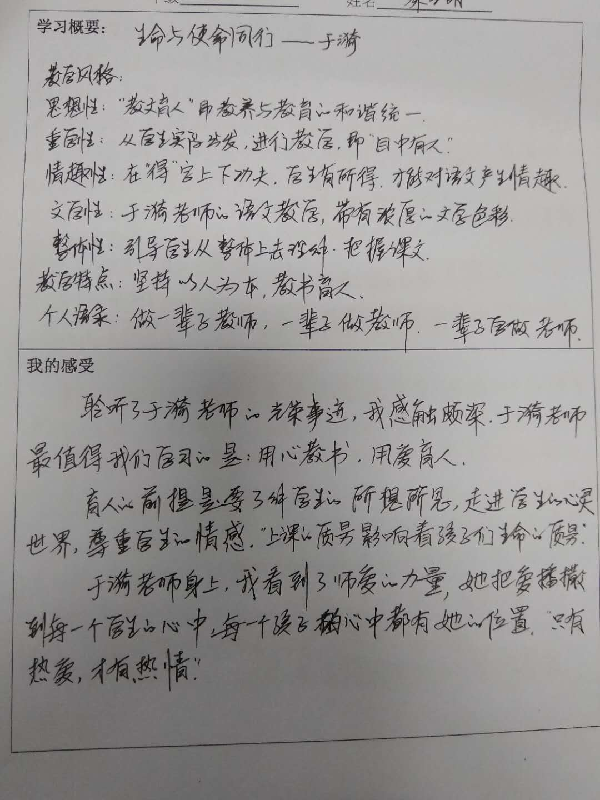 姓名
学习概要：生命与使命同行——于漪
教学风格：
思想性："教文育人"即教养与教育的和谐统一.
重学性：从学生实际出发，进行教学，即"目中有人".
情趣性：在"得"字上下功夫，学生有所得，才能对语文产生情趣.
文学性：于漪老师的语文教学，带有浓厚的文学色彩.
整体性：引导学生从整体上去理解、把握课文.
教学特点：坚持以人为本，教书育人.
个人语录：做一辈子教师，一辈子做教师，一辈子学做老师.
我的感受
聆听了于漪老师的光荣事迹，我感触颇深.于漪老师
最值得我们学习的是：用心教书，用爱育人.
育人的前提是要了解学生的所想所思，走进学生的心灵
世界，尊重学生的情感."上课的质量影响着孩子们生命的质量."
于漪老师身上，我看到了师爱的力量，她把爱播撒
到每一个学生的心中，每一个孩子的心中都有她的位置."只有
热爱，才有热情."